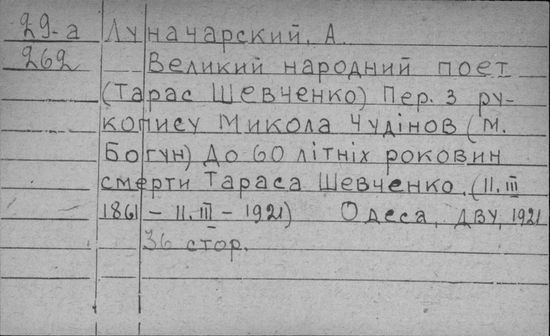 29-а Луначарский, А.
262 Великий народний поет
(Тарас Шевченко) Пер. з ру-
копису Микола Чудінов (М.
Богун) До 60 літніх роковин
смерти Тараса Шевченко. (11. ІІІ
1861 – 11. ІІІ – 1921) Одеса, ДВУ, 1921
36 стор.